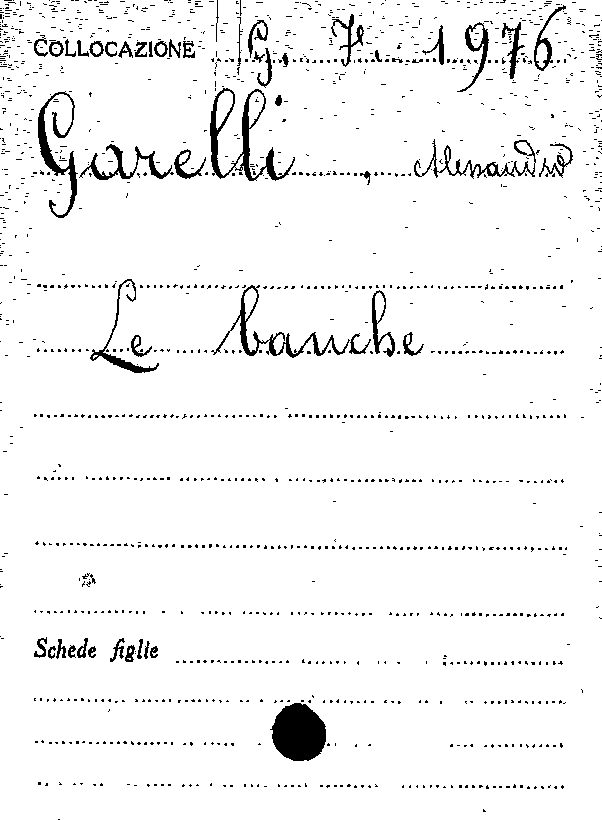 COLLOCAZIONE G. F. 1976
Garelli, Alessandro
Le banche
Schede figlie